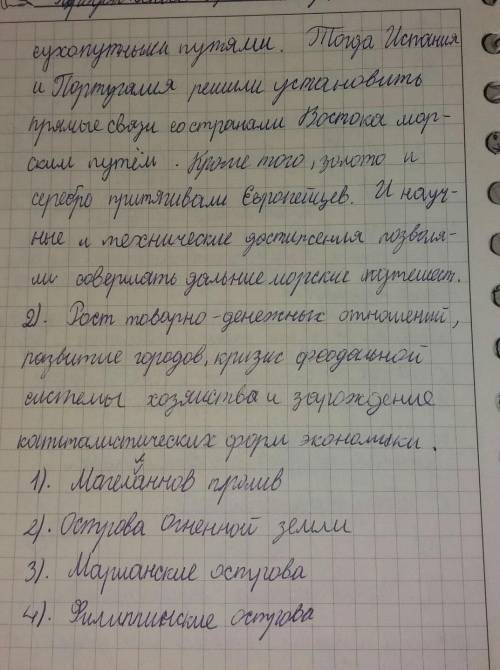 сухопутными путями. Тогда Испания
и Португалия решили установить
прямые связи со странами Востока мор-
ским путём. Кроме того, золото и
серебро притягивали Европейцев. И науч-
ные и технические достижения позволя-
ли совершать дальние морские путешест.
2). Рост товарно-денежных отношений,
развитие городов, кризис феодальной
системы хозяйства и зарождение
капиталистических форм экономики.
1). Магелланнов пролив
2). Острова Огненной земли
3). Марианские острова
4). Филиппинские острова